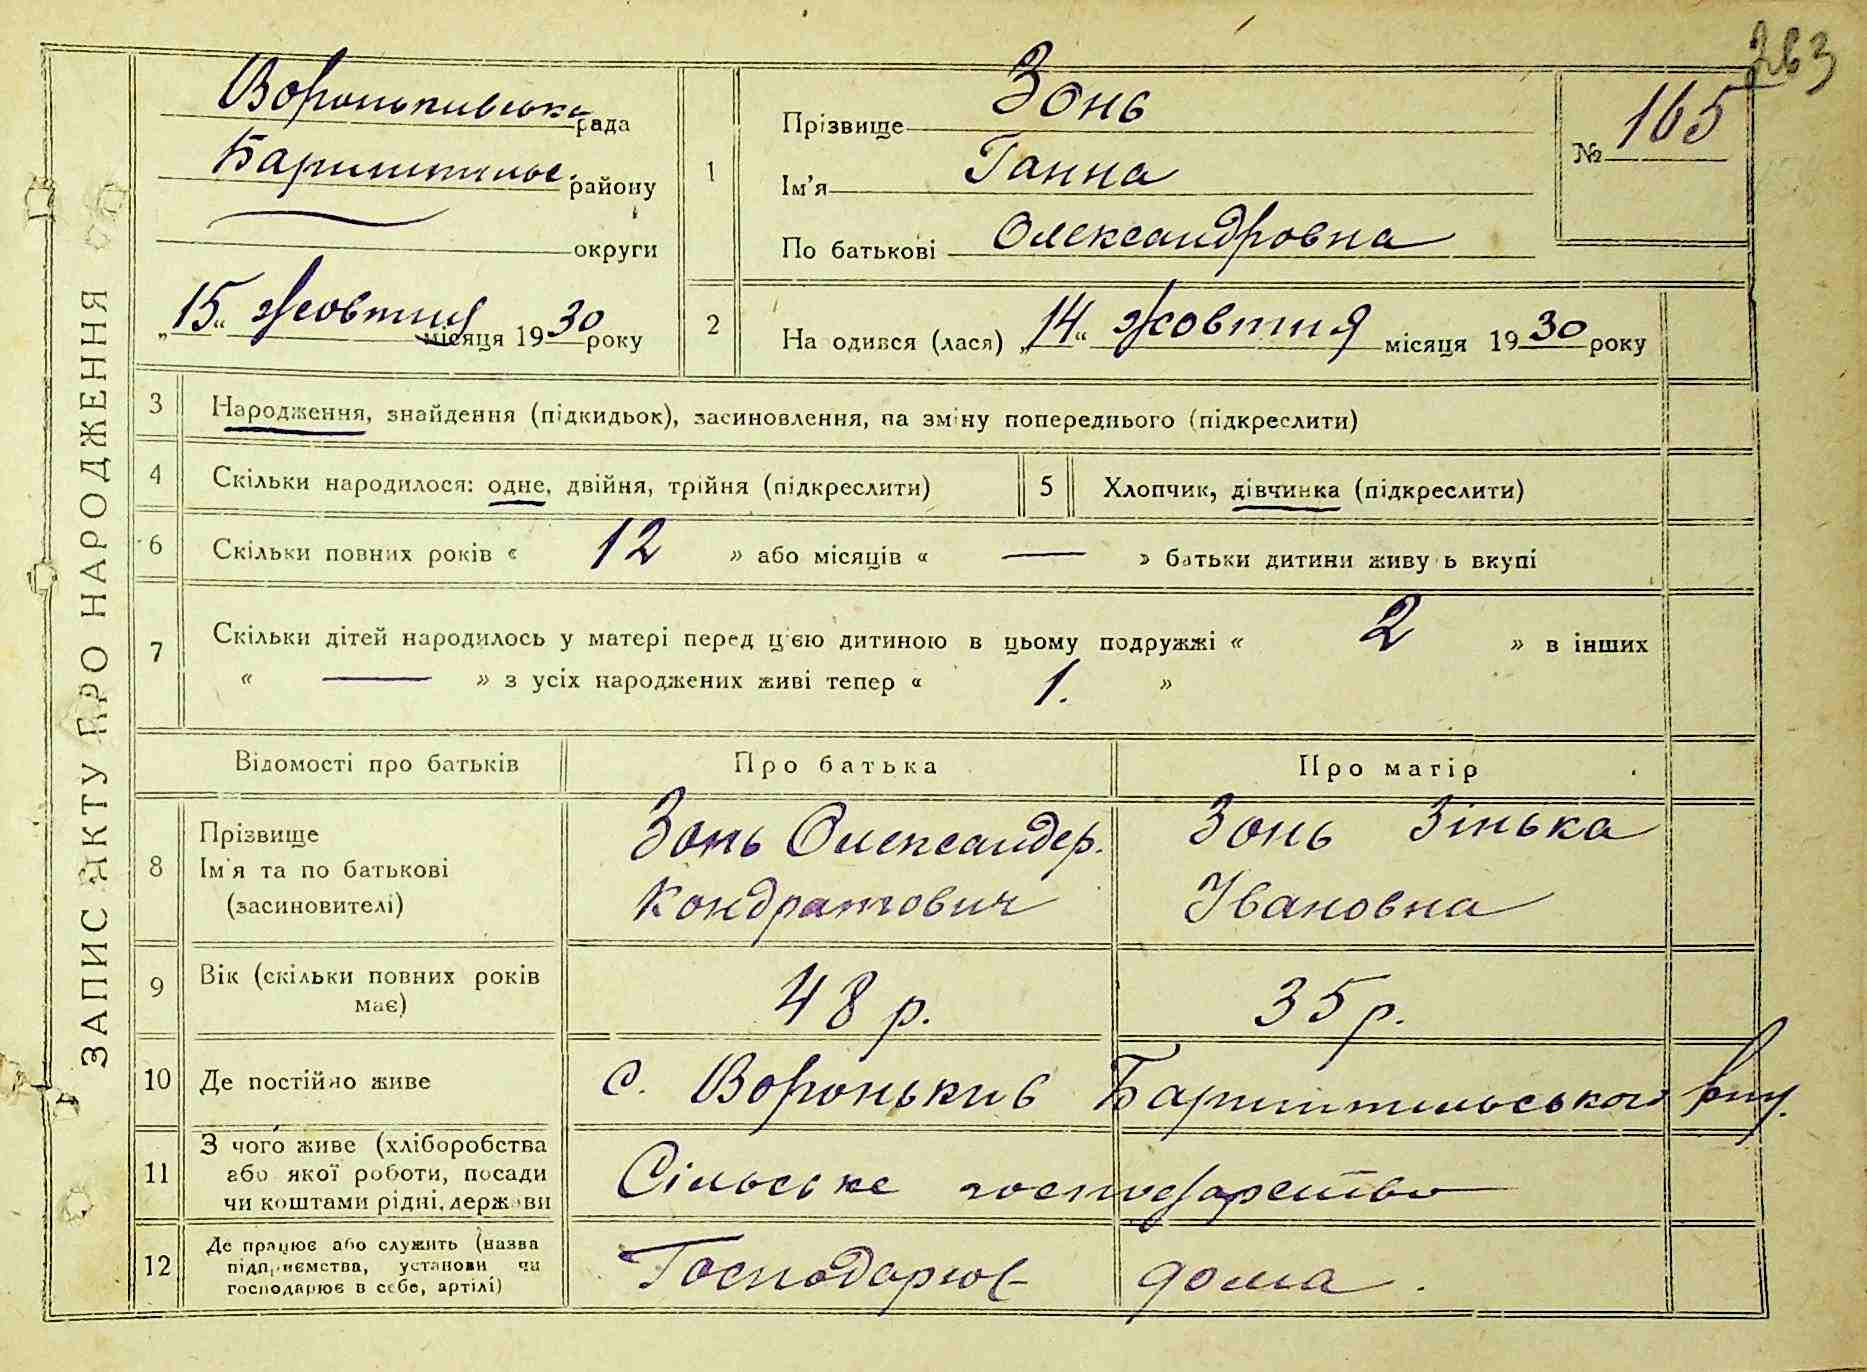 263
ЗАПИС АКТУ ПРО НАРОДЖЕННЯ
Вороньківська рада
Баришпільс. району
округи
„15“ Жовтня місяця 1930 року
1
Прізвище Зонь
Ім'я Ганна
По батькові Олександровна
№ 165
2
На одився (лася) „14“ жовтня місяця 1930 року
3 Народження, знайдення (підкидьок), засиновлення, на зміну попереднього (підкреслити)
4 Скільки народилося: одне, двійня, трійня (підкреслити)
5 Хлопчик, дівчинка (підкреслити)
6 Скільки повних років « 12 » або місяців « — » батьки дитини живу ь вкупі
7 Скільки дітей народилось у матері перед цією дитиною в цьому подружжі « 2 » в інших
« — » з усіх народжених живі тепер « 1. »
Відомості про батьків Про батька Про матір
8
Прізвище
Ім'я та по батькові
(засиновителі)
Зонь Олександер.
Кондратович
Зонь Зінька
Івановна
9 Вік (скільки повних років
має)
48 р. 35 р.
10 Де постійно живе с. Вороньків Баришпільського р-ну.
11 З чого живе (хліборобства
або якої роботи, посади
чи коштами рідні, держави
Сільське господарство
12 Де працює або служить (назва
підприємства, установи чи
господарює в себе, артілі)
Господарює дома.